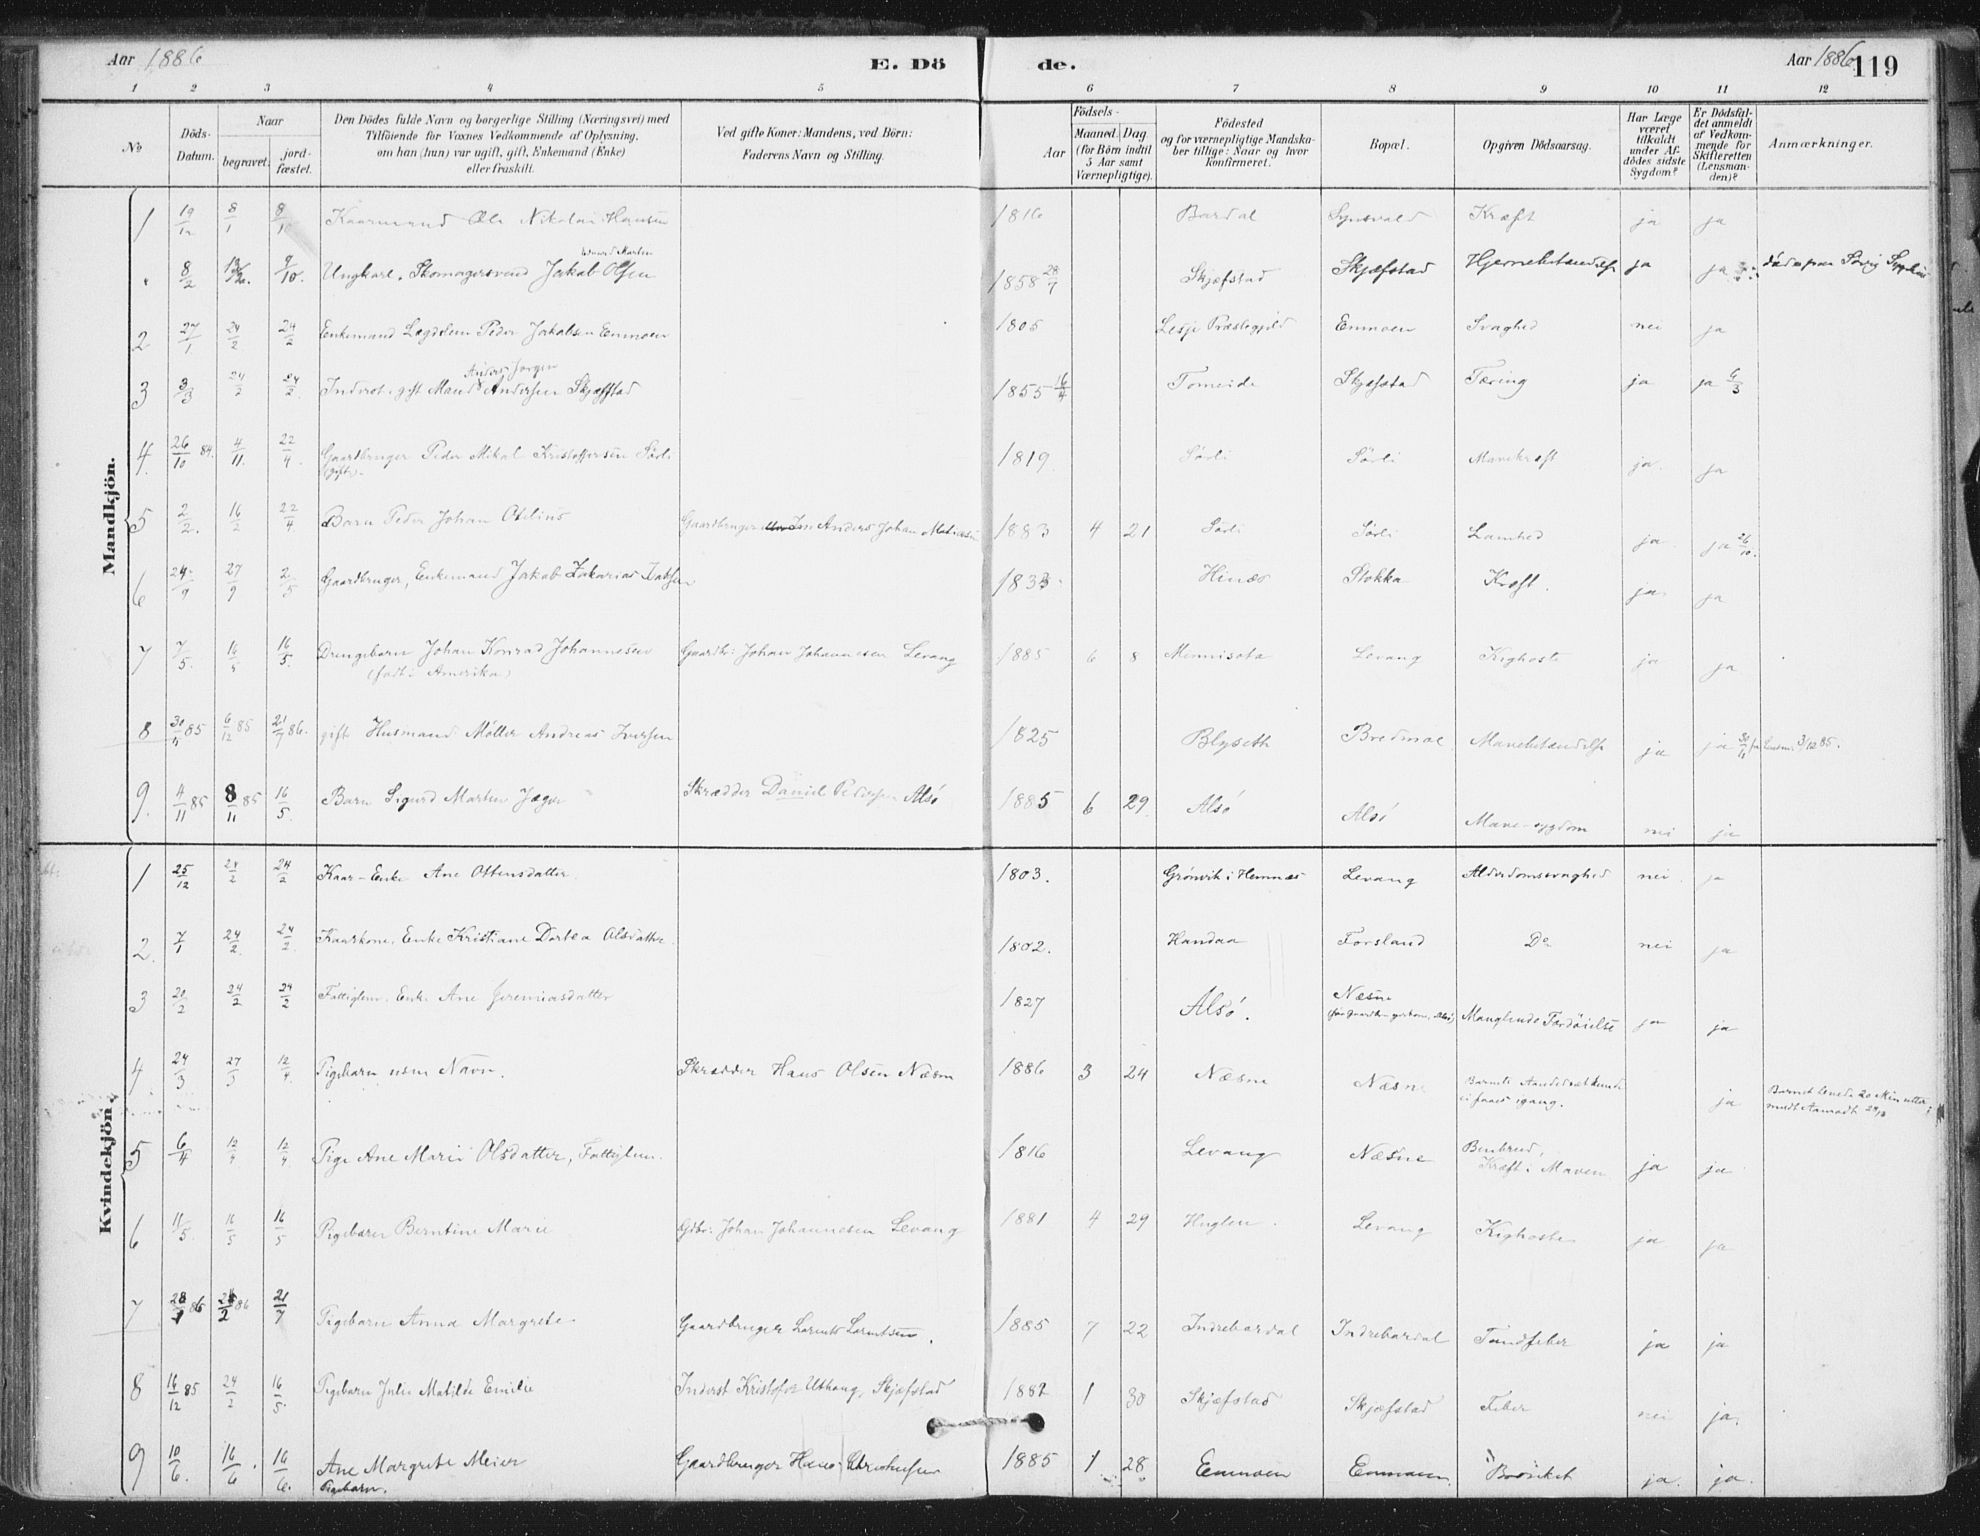 Aar 1886 E. Dö de. Aar 1886 119
1 2 3 4 5 6 7 8 9 10 11 12
No
Döds-Datum.
Naar
begravet. jord-fæstet.
Den Dödes fulde Navn og borgerlige Stilling (Næringsvei) med
Tilföiende for Voxnes Vedkommende af Oplysning.
om han (hun) var ugift, gift, Enkemand (Enke)
eller fraskilt.
Ved gifte Koner: Mandens, ved Börn:
Faderens Navn og Stilling.
Födsels-
Aar
Maaned. Dag
(for Börn indtil
5 Aar samt
Værnepligtige).
Födested
og for værnepligtige Mandska-
ber tillige: Naar og hvor
Konfirmeret.
Bopæl.
Opgiven Dödsaarsag.
Har Læge
været
tilkaldt
under Af-
dödes sidste
Sygdom?
Er Dödsfal-
det anmeldt
af Vedkom-
mende for
Skifteretten
(Lensman-
den)?
Anmærkninger.
Mandkjön.
1 19/12 8/1 8/1 Kaarmand Ole Nikolai Hansen 1816 Bardal Kræft ja ja
8/2 9/10. Ungkarl. Skomagersvend Jakob Olsen 1858 28/7 Skjæfstad Skjæfstad Hjernebetændelse ja ja
2 27/1 24/2 24/2 Enkemand Lægdslem Peder Jakobsen Enmoen 1805 Lesje Præstegjeld Enmoen Svaghed nei ja
Anders Jørgen
3 3/3 24/2 24/2 Inderst. gift Mand Andersen Skjæfstad 1855 16/4 Tomeide Skjæfstad Tæring ja ja 6/3
4. 26/10 84. 4/11. 22/4. Gaardbruger Peder Mikal Kristoffersen Sörli 1819. Sörli Sörli Mavekræft ja. ja
(gift).
5 2/2. 16/2 22/4 Barn Peder Johan Otelius Gaardbruger Anders Johan 1883 4 21 Sörli Sörli Lamhed ja ja 26/10.
6 24/9 27/9 2/5 Gaardbruger, Enkemand Jakob Zakarias 1833 Hinæs Stokka Kræft. ja. ja
7 7/5. 16/5 16/5. Drengebarn Johan Konrad Johannesen Gaardbr: Johan Johannesen Levang 1885 6 8 Minnisota Levang Kighoste ja ja
(født i Amerika)
8 30/11 85 6/12 85 21/7 86. gift Husmand Møller Andreas Iversen 1825 Blyseth Bredmoe Mavebetændelse ja ja 30/11 3/12 85.
9. 4/11 85 8/11 85 16/5. Barn Sigurd Marten Jæger Skrædder Daniel Pedersen Alsö 1885 6 29. Alsö Alsö Mave-sygdom nei ja
Kvindekjön.
1 25/12 24/2 24/2 Kaar-Enke Ane Ottensdatter. 1803. Grönvik i Hemnæs Levang Alderdomssvaghed nei ja
2. 7/1 24/2. 24/2. Kaarkone. Enke Kristiane Dortea Olsdatter. 1802. Handaa Forsland Do nei ja
3 20/2 24/2 24/2 Fattiglem. Enke Ane Jeremiasdatter 1827 Alsö. Næsne Manglende Fordöielse ja ja
4 24/3 27/3 12/4. Pigebarn uden Navn. Skrædder Hans Olsen Næsne 1886 3 24 Næsne Næsne Barnets Aandedræt kunde ja Barnet levede 20 Min efter
ei faaes igang.
5 6/4 12/4 12/4 Pige Ane Marie Olsdatter, Fattiglem. 1816 Levang Næsne Benbrud, ja ja
Kræft i Maven
6 11/5. 16/5 16/5 Pigebarn Berntine Marie Gdbr: Johan Johannesen Levang 1881 4 29 Huglen. Levang Kighoste ja ja
7 28/1 86 28/2 86 21/7 Pigebarn Anna Margrete Gaardbruger Lorents Lorentsen. 1885 7 22 Indrebardal Indrebardal Tandfeber ja ja
8 16/12 85 24/2 16/5 Pigebarn Julie Matilde Emilie Inderst Kristofer Uthaug, Skjæfstad 1882 1 30 Skjæfstad Skjæfstad Feber nei ja.
9 10/6. 16/6. 16/6. Ane Margrete Meier Gaardbruger Hans 1885 1 28 Enmoen Enmoen ja. ja.
Pigebarn.